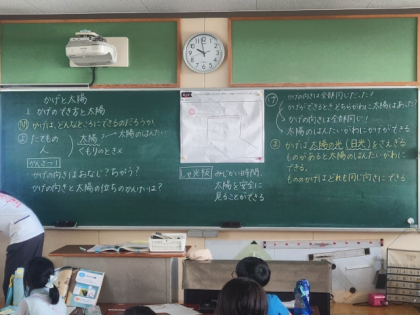 かげと太陽
1 かげのでき方と太陽
問 かげは、どんなところにできるのだろうか
予 たてもの
人
太陽 → 太陽のはんたい
くもりのとき×
かんさつ1
・かげの向きはおなじ?ちがう?
かげの向きと太陽のいちのかんけいは?
しゃ光板
みじかい時間、
太陽を安全に
見ることができる
け かげの向きは全部同じだった?
かげができるときどちらがわに太陽はあった?
かげの向きは全部同じ!
太陽のはんたいがわにかげができる
ま かげは太陽の光(日光)をさえぎる
ものがあると太陽のはんたいがわに
できる。
もののかげはどれも同じ向きにできる